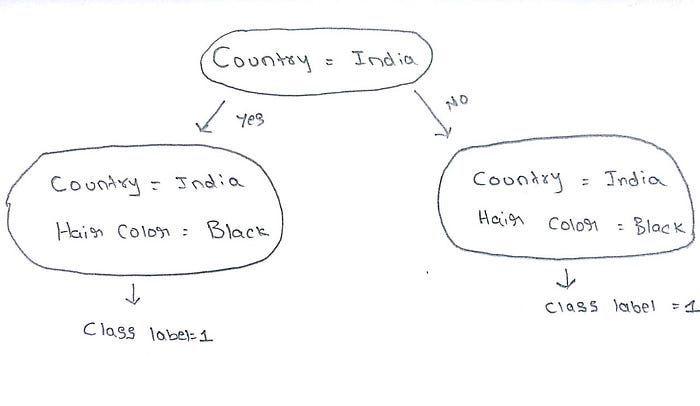 Country = India
Yes
No
Country = India
Hair Color = Black
Class label=1
Country = India
Hair Color = Black
Class label = 1